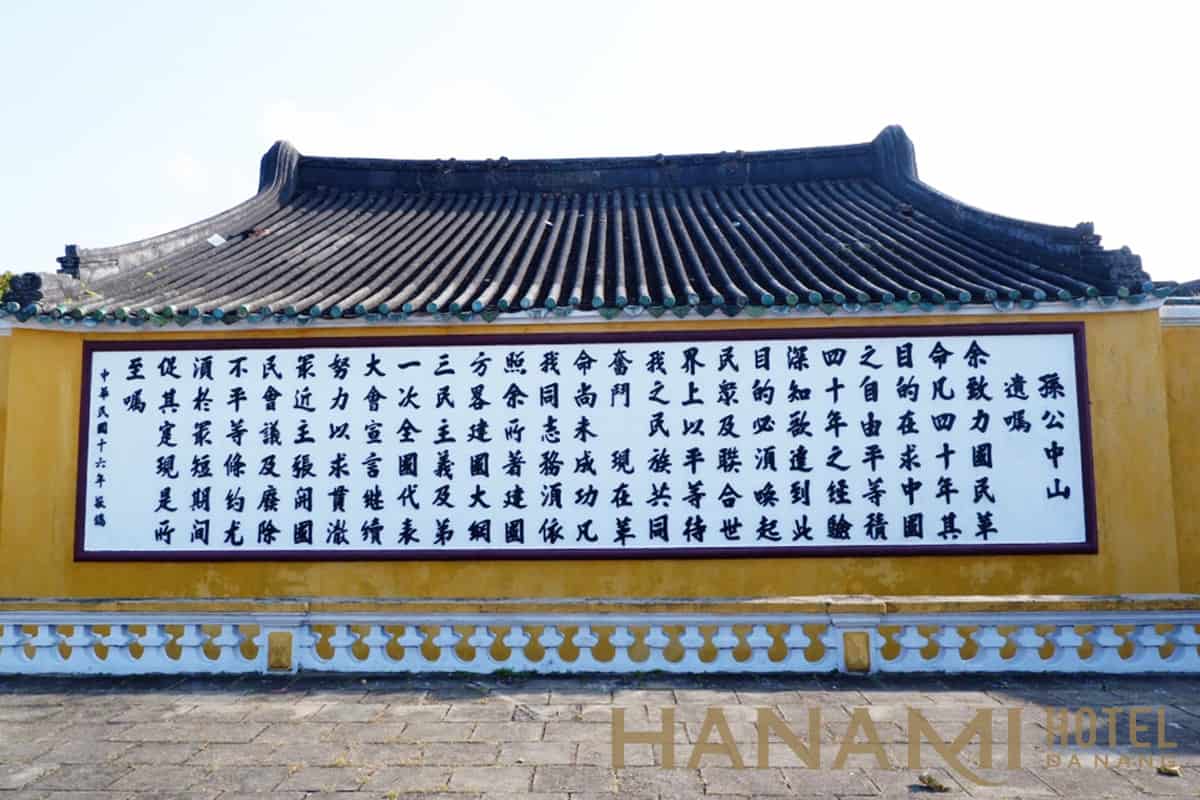 孫公中山
遺囑
余致力國民革
命凡四十年其
目的在求中國
之自由平等積
四十年之經驗
深知欲達到此
目的必須喚起
民眾及聯合世
界上以平等待
我之民族共同
奮鬥 現在革
命尚未成功凡
我同志務須依
照余所著建國
方畧建國大綱
三民主義及弟
一次全國代表
大會宣言繼續
努力以求貫澈
最近主張開國
民會議及廢除
不平等條約尤
須於最短期間
促其寔現是所
至囑
中華民國十六年
HANAMI HOTEL
DA NANG